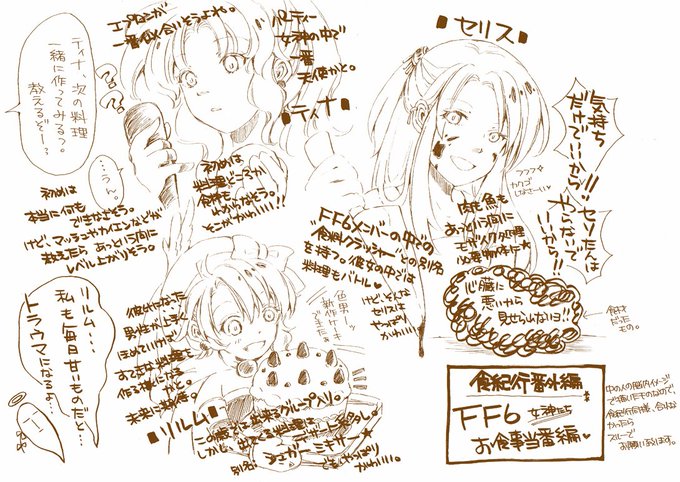 エプロンが
一番似合いそうよね。
パーティー
女神の中で
一番
天使かと。
■ティナ■
ティナ、次の料理
一緒に作ってみる?。
教えるぞー?
…うん。
初めは
料理どころか
食材も
わからなそう。
そこがかわいい!!
初めは
本当に何も
できなさそう。
けど、マッシュやカイエンなどが
教えたら あっという間に
レベル上がりそう。
■セリス■
気持ち
だけで
いいから!!
セリたんは
やらないで
いいから!!
フフフ☆
カクゴ
しなさーい♥
肉も魚も
あっという間に
モザイク処理
必要物体に★
"FF6メンバーの中での
"食料クラッシャー"との別名
を持つ。彼女の中では
料理もバトル♥
けど、そんな
セリスは
やっぱり
かわいい。
心臓に
悪いから
見せられないヨ!!
食材
だった
もの。
■リルム■
色男ー♪
新作ケーキ
できたぁ♪
男性が上手く
ほめていけば
すてきな料理を
作る様になる
かと。
未来に期待。
この歳でお菓子作るグループ入り。
しかし、出てくる料理は
デザート大を少し。
別名 シュガーミキサー★
でもやっぱり
かわいい。
リルム...
私も毎日甘いものだと...
トラウマに
なるよ...
食紀行番外編
FF6 女神たち
お食事当番編♥
中の人の脳内イメージ
で描いたものなので、
食紀行同様、合わな
かったら
スルーで
お願い致します。